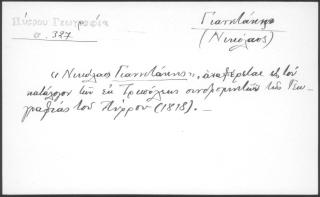 Πύρρου Γεωγραφία
σ. 327
Γιαννιτάκης
(Νικόλαος)
"Νικόλαος Γιαννιτάκης", ἀναφέρεται εἰς τὸν
κατάλογον τῶν ἐκ Τριπόλεως συνδρομητῶν τῆς Γεω-
γραφίας τοῦ Πύρρου (1818). —